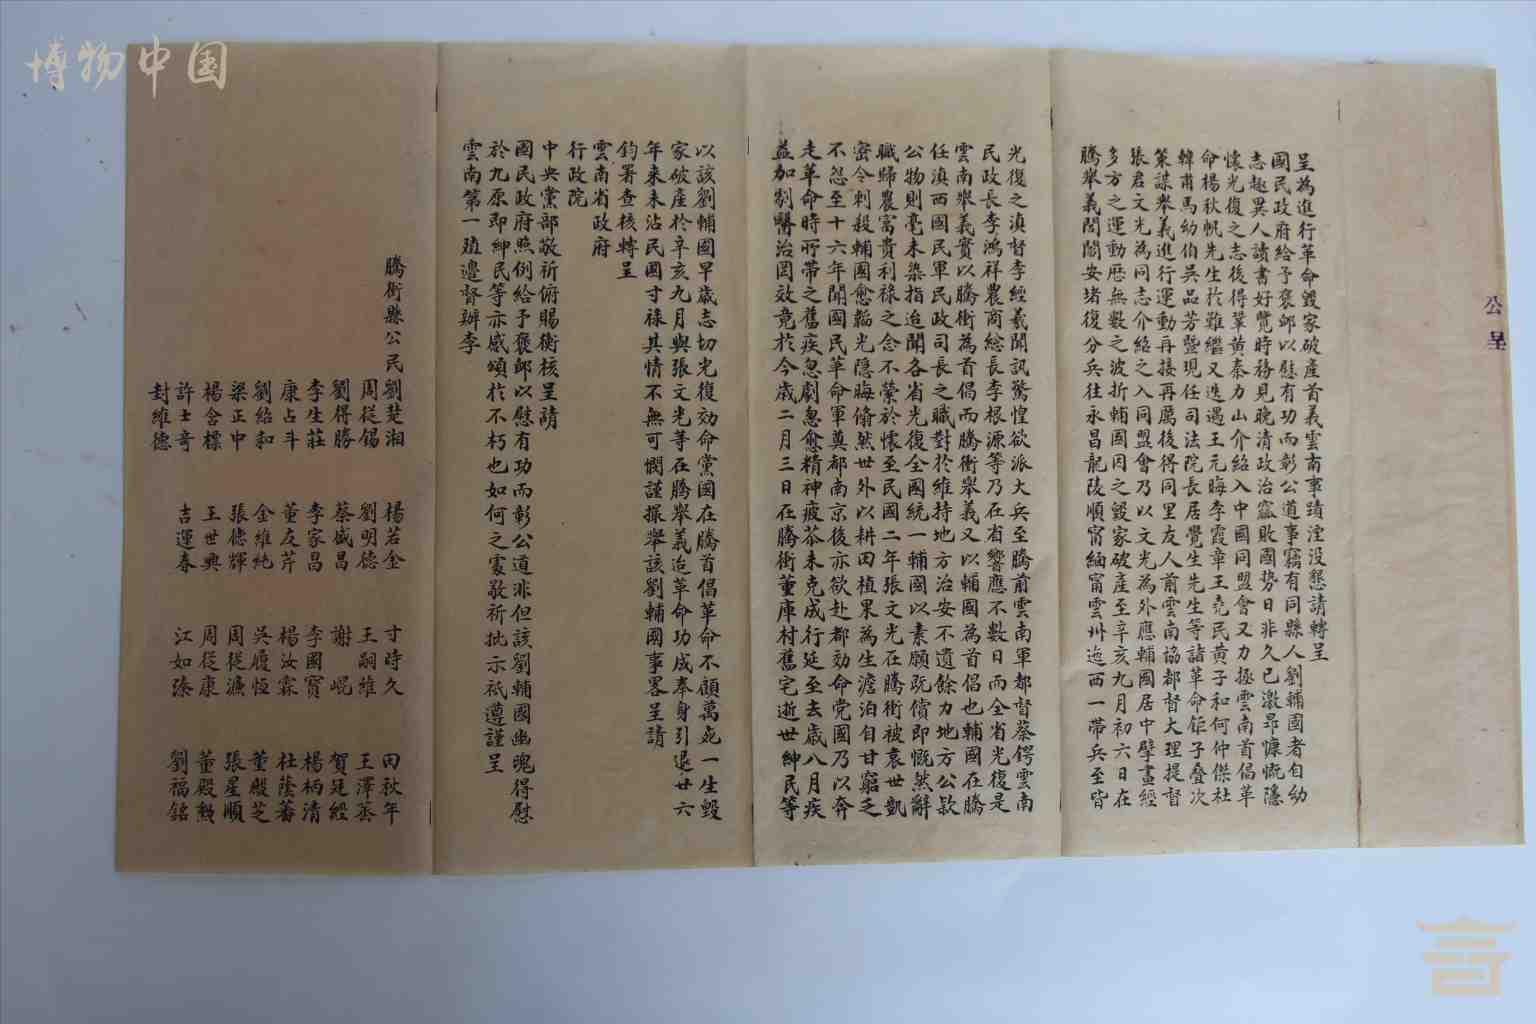 公呈
呈為進行革命毀家破產首義雲南事蹟湮没懇請轉呈
國民政府給予褒卹以慰有功而彰公道事竊有同縣人劉輔國者自幼
志趣異人讀書好覽時務見晚清政治窳敗國勢日非久已激昂慷慨隱
懷光復之志後得鞏黄秦力山介紹入中國同盟會又力極雲南首倡革
命楊秋帆先生於難繼又迭遇王元晦李霞章王堯民黄子和何仲傑杜
韓甫馬幼伯吳品芳暨現任司法院長居覺生先生等諸革命鉅子叠次
策謀舉義進行運動再接再厲後得同里友人前雲南協都督大理提督
張君文光為同志介紹之入同盟會乃以文光為外應輔國居中擘畫經
多方之運動歷無數之波折輔國因之毀家破產至辛亥九月初六日在
騰舉義閭閻安堵復分兵往永昌龍陵順甯緬甯雲州迤西一帶兵至皆
光復之滇督李經羲聞訊驚惶欲派大兵至騰前雲南軍都督蔡鍔雲南
民政長李鴻祥農商総長李根源等乃在省響應不數日而全省光復是
雲南舉義實以騰衝為首倡而騰衝舉義又以輔國為首倡也輔國在騰
任滇西國民軍民政司長之職對於維持地方治安不遺餘力地方公款
公物則毫未染指迨聞各省光復全國統一輔國以素願既償即慨然辭
職歸農富貴利祿之念不縈於懷至民國二年張文光在騰衝被袁世凱
密令刺殺輔國愈韜光隱晦翛然世外以耕田植果為生澹泊自甘窮乏
不怨至十六年聞國民革命軍奠都南京後亦欲赴都効命党國乃以奔
走革命時所帶之舊疾忽劇忽愈精神疲苶未克成行延至去歲八月疾
益加劇醫治罔效竟於今歲二月三日在騰衝董庫村舊宅逝世紳民等
以該劉輔國早歲志切光復効命黨國在騰首倡革命不顧萬死一生毀
家破產於辛亥九月與張文光等在騰舉義迨革命功成奉身引退廿六
年來未沾民國寸祿其情不無可憫謹據舉該劉輔國事畧呈請
鈞署查核轉呈
雲南省政府
行政院
中央黨部敬祈俯賜衡核呈請
國民政府照例給予褒卹以慰有功而彰公道非但該劉輔國幽魂得慰
於九原即紳民等亦感頌於不朽也如何之處敬祈批示祇遵謹呈
雲南第一殖邊督辦李
騰衝縣公民劉楚湘 楊若金 寸時久 田秋年
周從錫 劉明德 王嗣維 王澤
劉得勝 蔡盛昌 謝崐 賀廷經
李生莊 李家昌 李國賓 楊柄清
康占斗 董友芹 楊汝霖 杜蔭蕃
劉紹和 金維純 吳履恒 董殿芝
梁正中 張德輝 周從濂 張星順
楊含標 王世興 周從康 董殿勳
許士奇 吉運春 江如溱 劉福銘
封維德
博物中国